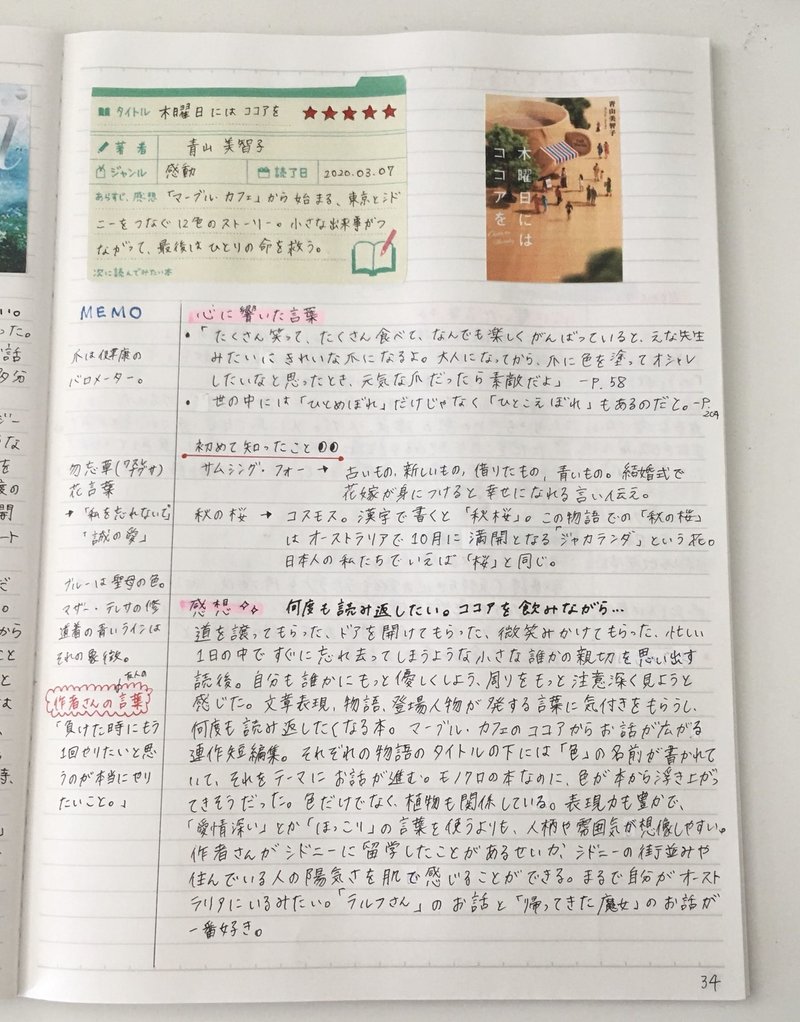 タイトル 木曜日にはココアを ★★★★★
著者 青山 美智子
ジャンル 感動 読了日 2020.03.07
あらすじ、感想 「マーブル・カフェ」から始まる、東京とシド
ニーをつなぐ12色のストーリー。小さな出来事がつ
ながって、最後はひとりの命を救う。
次に読んでみたい本
青山美智子
木曜日には
ココアを
MEMO
爪は健康の
バロメーター。
勿忘草(ワスレナグサ)
花言葉
→「私を忘れないで」
「誠の愛」
ブルーは聖母の色。
マザー・テレサの修
道着の青いラインは
それの象徴。
友人の
作者さんの言葉
「負けた時にもう
1回やりたいと思
うのが本当にやり
たいこと。」
心に響いた言葉
•「たくさん笑って、たくさん食べて、なんでも楽しくがんばっていると、えな先生
みたいにきれいな爪になるよ。大人になってから、爪に色を塗ってオシャレ
したいなと思ったとき、元気な爪だったら素敵だよ」 -P.58
• 世の中には「ひとめぼれ」だけじゃなく「ひとこえぼれ」もあるのだと。-P.
209
初めて知ったこと
サムシング・フォー → 古いもの、新しいもの、借りたもの、青いもの。結婚式で
花嫁が身につけると幸せになれる言い伝え。
秋の桜 → コスモス。漢字で書くと「秋桜」。この物語での「秋の桜」
はオーストラリアで10月に満開となる「ジャカランダ」という花。
日本人の私たちでいえば「桜」と同じ。
感想 何度も読み返したい。ココアを飲みながら…
道を譲ってもらった、ドアを開けてもらった、微笑みかけてもらった、忙しい
1日の中ですぐに忘れ去ってしまうような小さな誰かの親切を思い出す
読後。自分も誰かにもっと優しくしよう、周りをもっと注意深く見ようと
感じた。文章表現、物語、登場人物が発する言葉に気付きをもらうし、
何度も読み返したくなる本。マーブル・カフェのココアからお話が広がる
連作短編集。それぞれの物語のタイトルの下には「色」の名前が書かれて
いて、それをテーマにお話が進む。モノクロの本なのに、色が本から浮き上がっ
てきそうだった。色だけでなく、植物も関係している。表現力も豊かで、
「愛情深い」とか「ほっこり」の言葉を使うよりも、人柄や雰囲気が想像しやすい。
作者さんがシドニーに留学したことがあるせいか、シドニーの街並みや
住んでいる人の陽気さを肌で感じることができる。まるで自分がオースト
ラリアにいるみたい。「ラルフさん」のお話と「帰ってきた魔女」のお話が
一番好き。
34